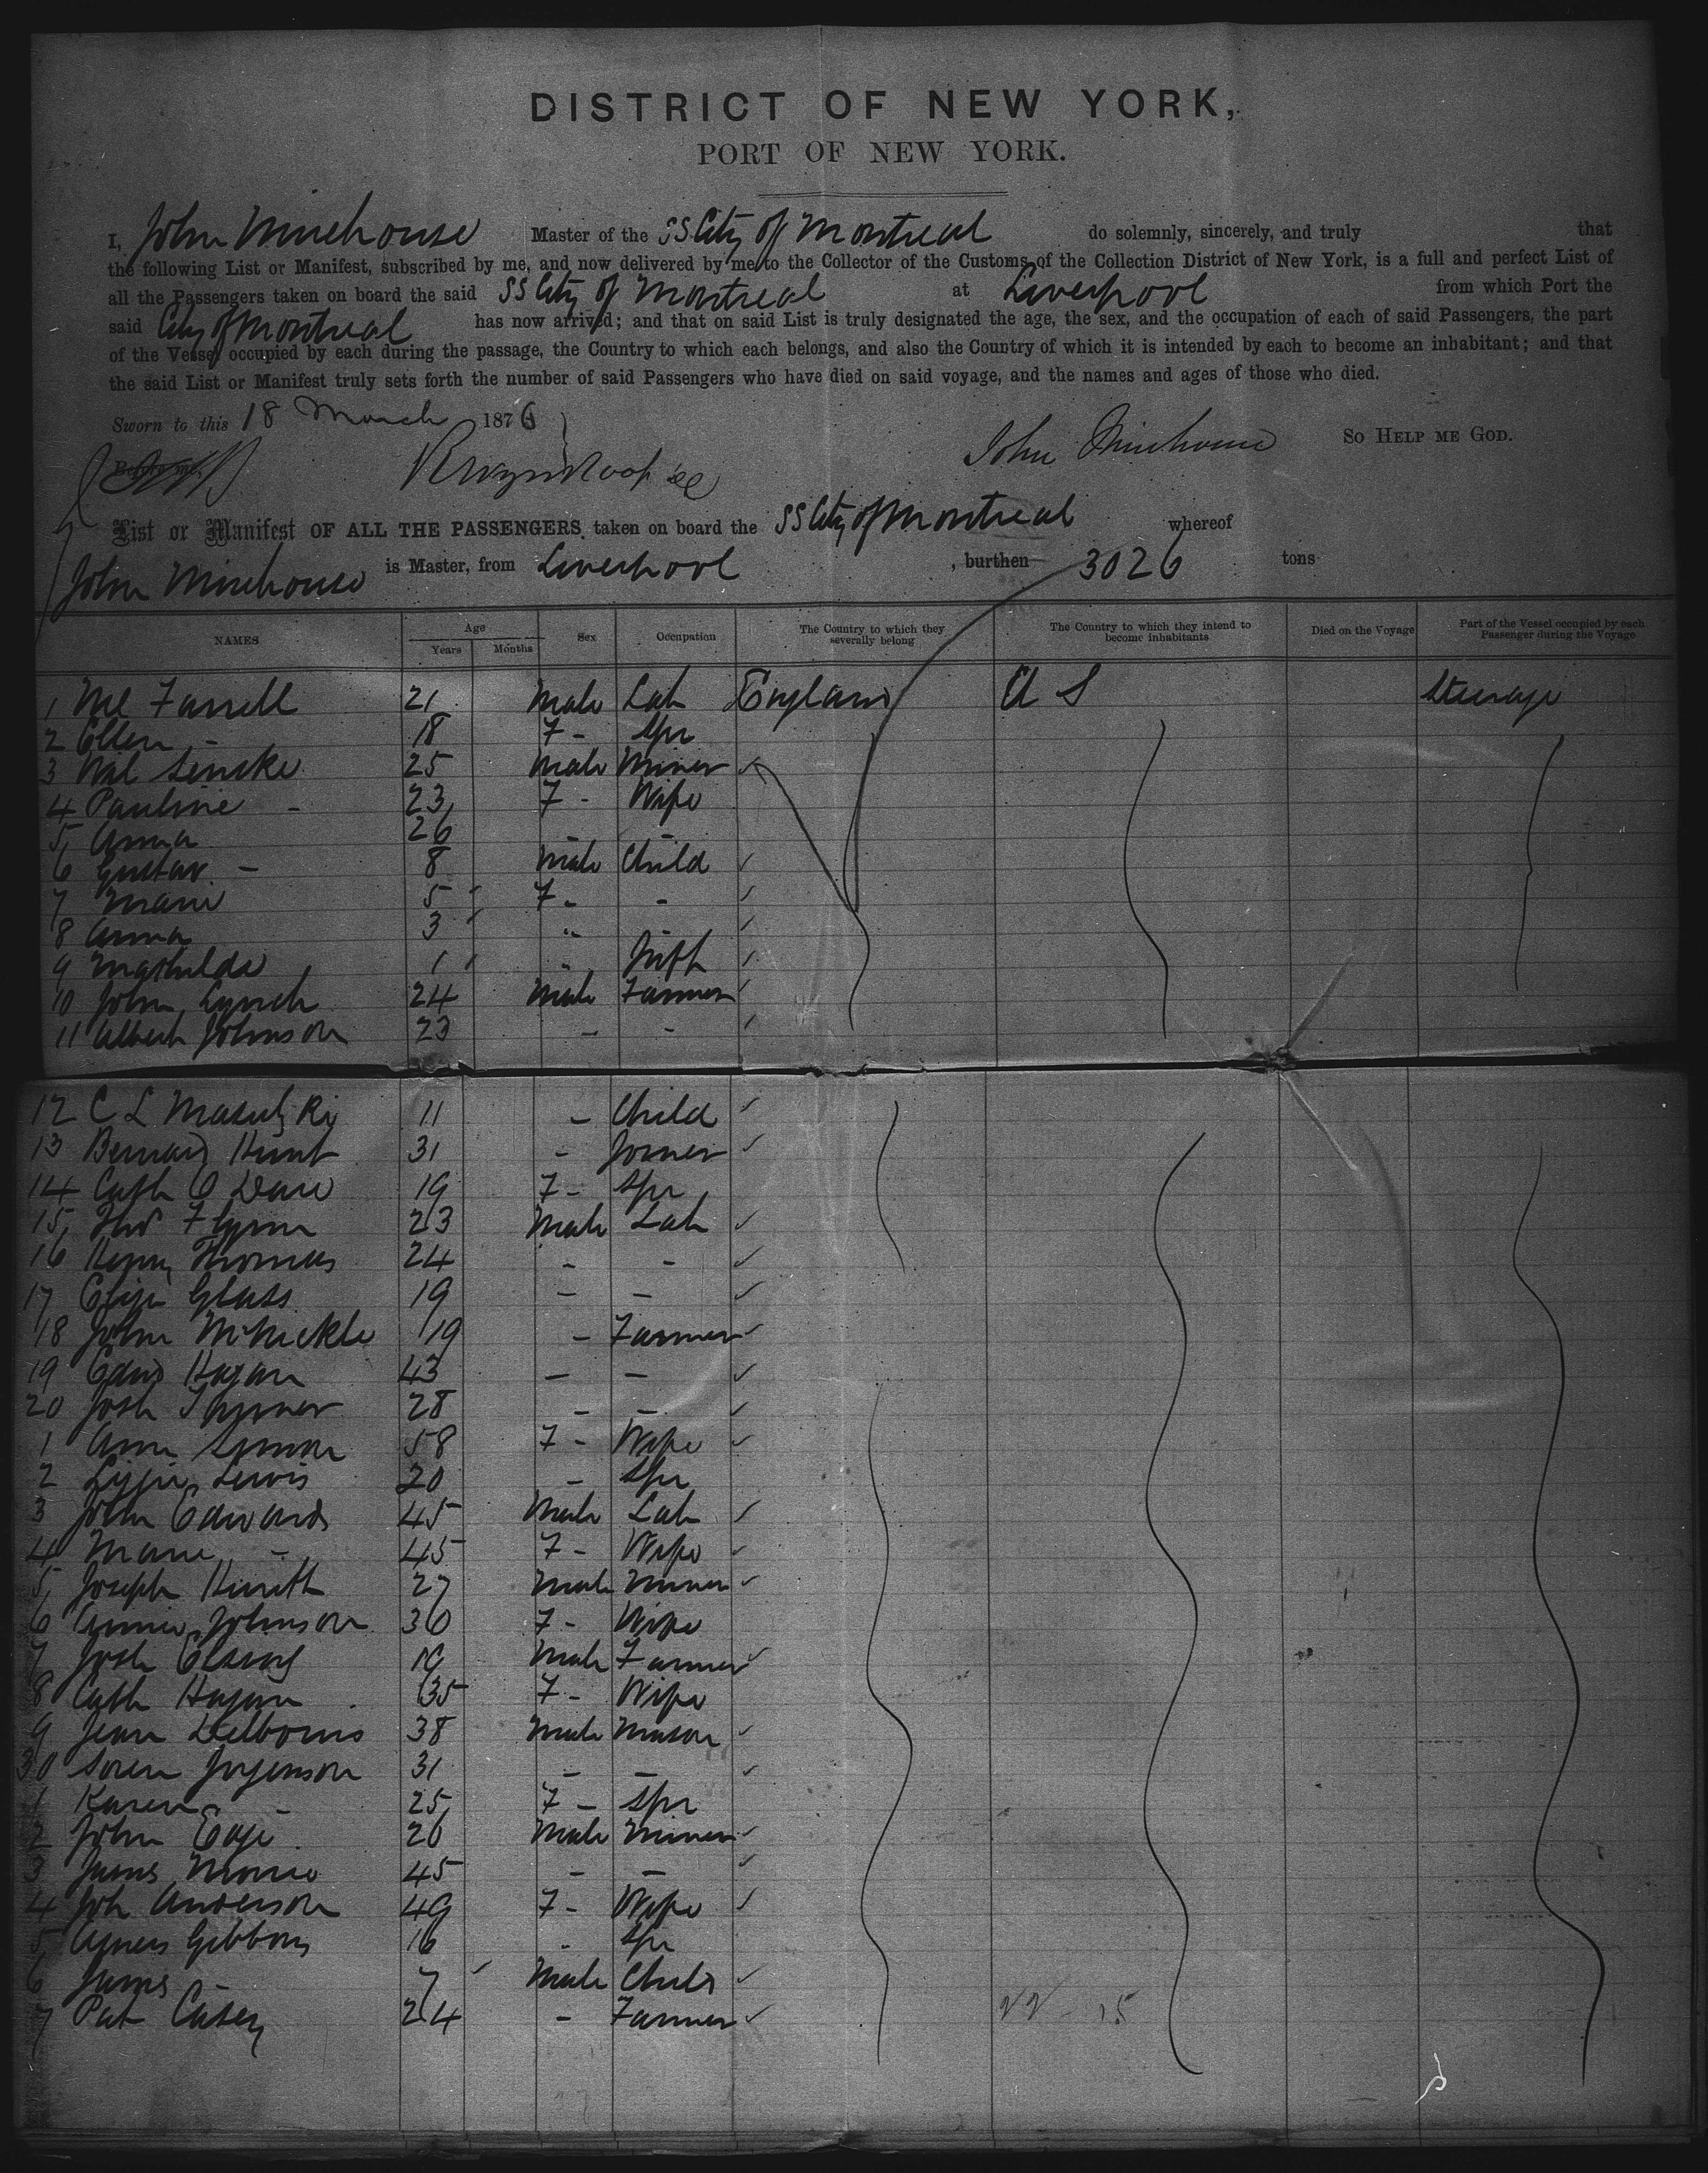 DISTRICT OF NEW YORK,
PORT OF NEW YORK.
I, John Mirehouse Master of the SS City of Montreal do solemnly, sincerely, and truly that
the following List or Manifest, subscribed by me, and now delivered by me to the Collector of the Customs of the Collection District of New York, is a full and perfect List of
all the Passengers taken on board the said SS City of Montreal at Liverpool from which Port the
said City of Montreal has now arrived; and that on said List is truly designated the age, the sex, and the occupation of each of said Passengers, the part
of the Vessel occupied by each during the passage, the Country to which each belongs, and also the Country of which it is intended by each to become an inhabitant; and that
the said List or Manifest truly sets forth the number of said Passengers who have died on said voyage, and the names and ages of those who died.
Sworn to this 18 March 1876
John Mirehouse So Help me God.
Before me,
List or Manifest OF ALL THE PASSENGERS taken on board the SS City of Montreal whereof
John Mirehouse is Master, from Liverpool , burthen 3026 tons
NAMES Age Years Months Sex Occupation The Country to which they severally belong The Country to which they intend to become inhabitants Died on the Voyage Part of the Vessel occupied by each Passenger during the Voyage
1 Ml Farrell 21 Male Lab England U S Steerage
2 Ellen - 18 F - Spr
3 Wil 25 Male Miner
4 Pauline - 23 F - Wife
5 Anna 26
6 Gustav - 8 Male Child
7 Marie 5 F - -
8 Anna 3 "
9 Mathilde 1 " Inft
10 John Lynch 24 Male Farmer
11 Albert Johnson 23 - -
12 C L 11 - Child
13 Bernard Hunt 31 - Joiner
14 Cath O 19 F - Spr
15 Tho Flynn 23 Male Lab
16 Henry Thomas 24 - -
17 Glass 19 - -
18 John McNickle 19 - Farmer
19 Edwd Hagan 43 - -
20 Josh 28 - -
1 Ann Simon 58 F - Wife
2 Lizzie Lewis 20 - Spr
3 John Edwards 45 Male Lab
4 Marie - 45 F - Wife
5 Joseph 27 Male Miner
6 Annie Johnson 30 F - Wife
7 Josh 19 Male Farmer
8 Cath Hagan 35 F - Wife
9 Jean 38 Male Mason
30 Soren Jorgenson 31 - -
1 Karen - 25 F - Spr
2 John Edge 26 Male Miner
3 James 45 - -
4 Joh Anderson 49 F - Wife
5 Agnes Gibbons 16 - Spr
6 James - 7 Male Child
7 Pat Casey 24 - Farmer